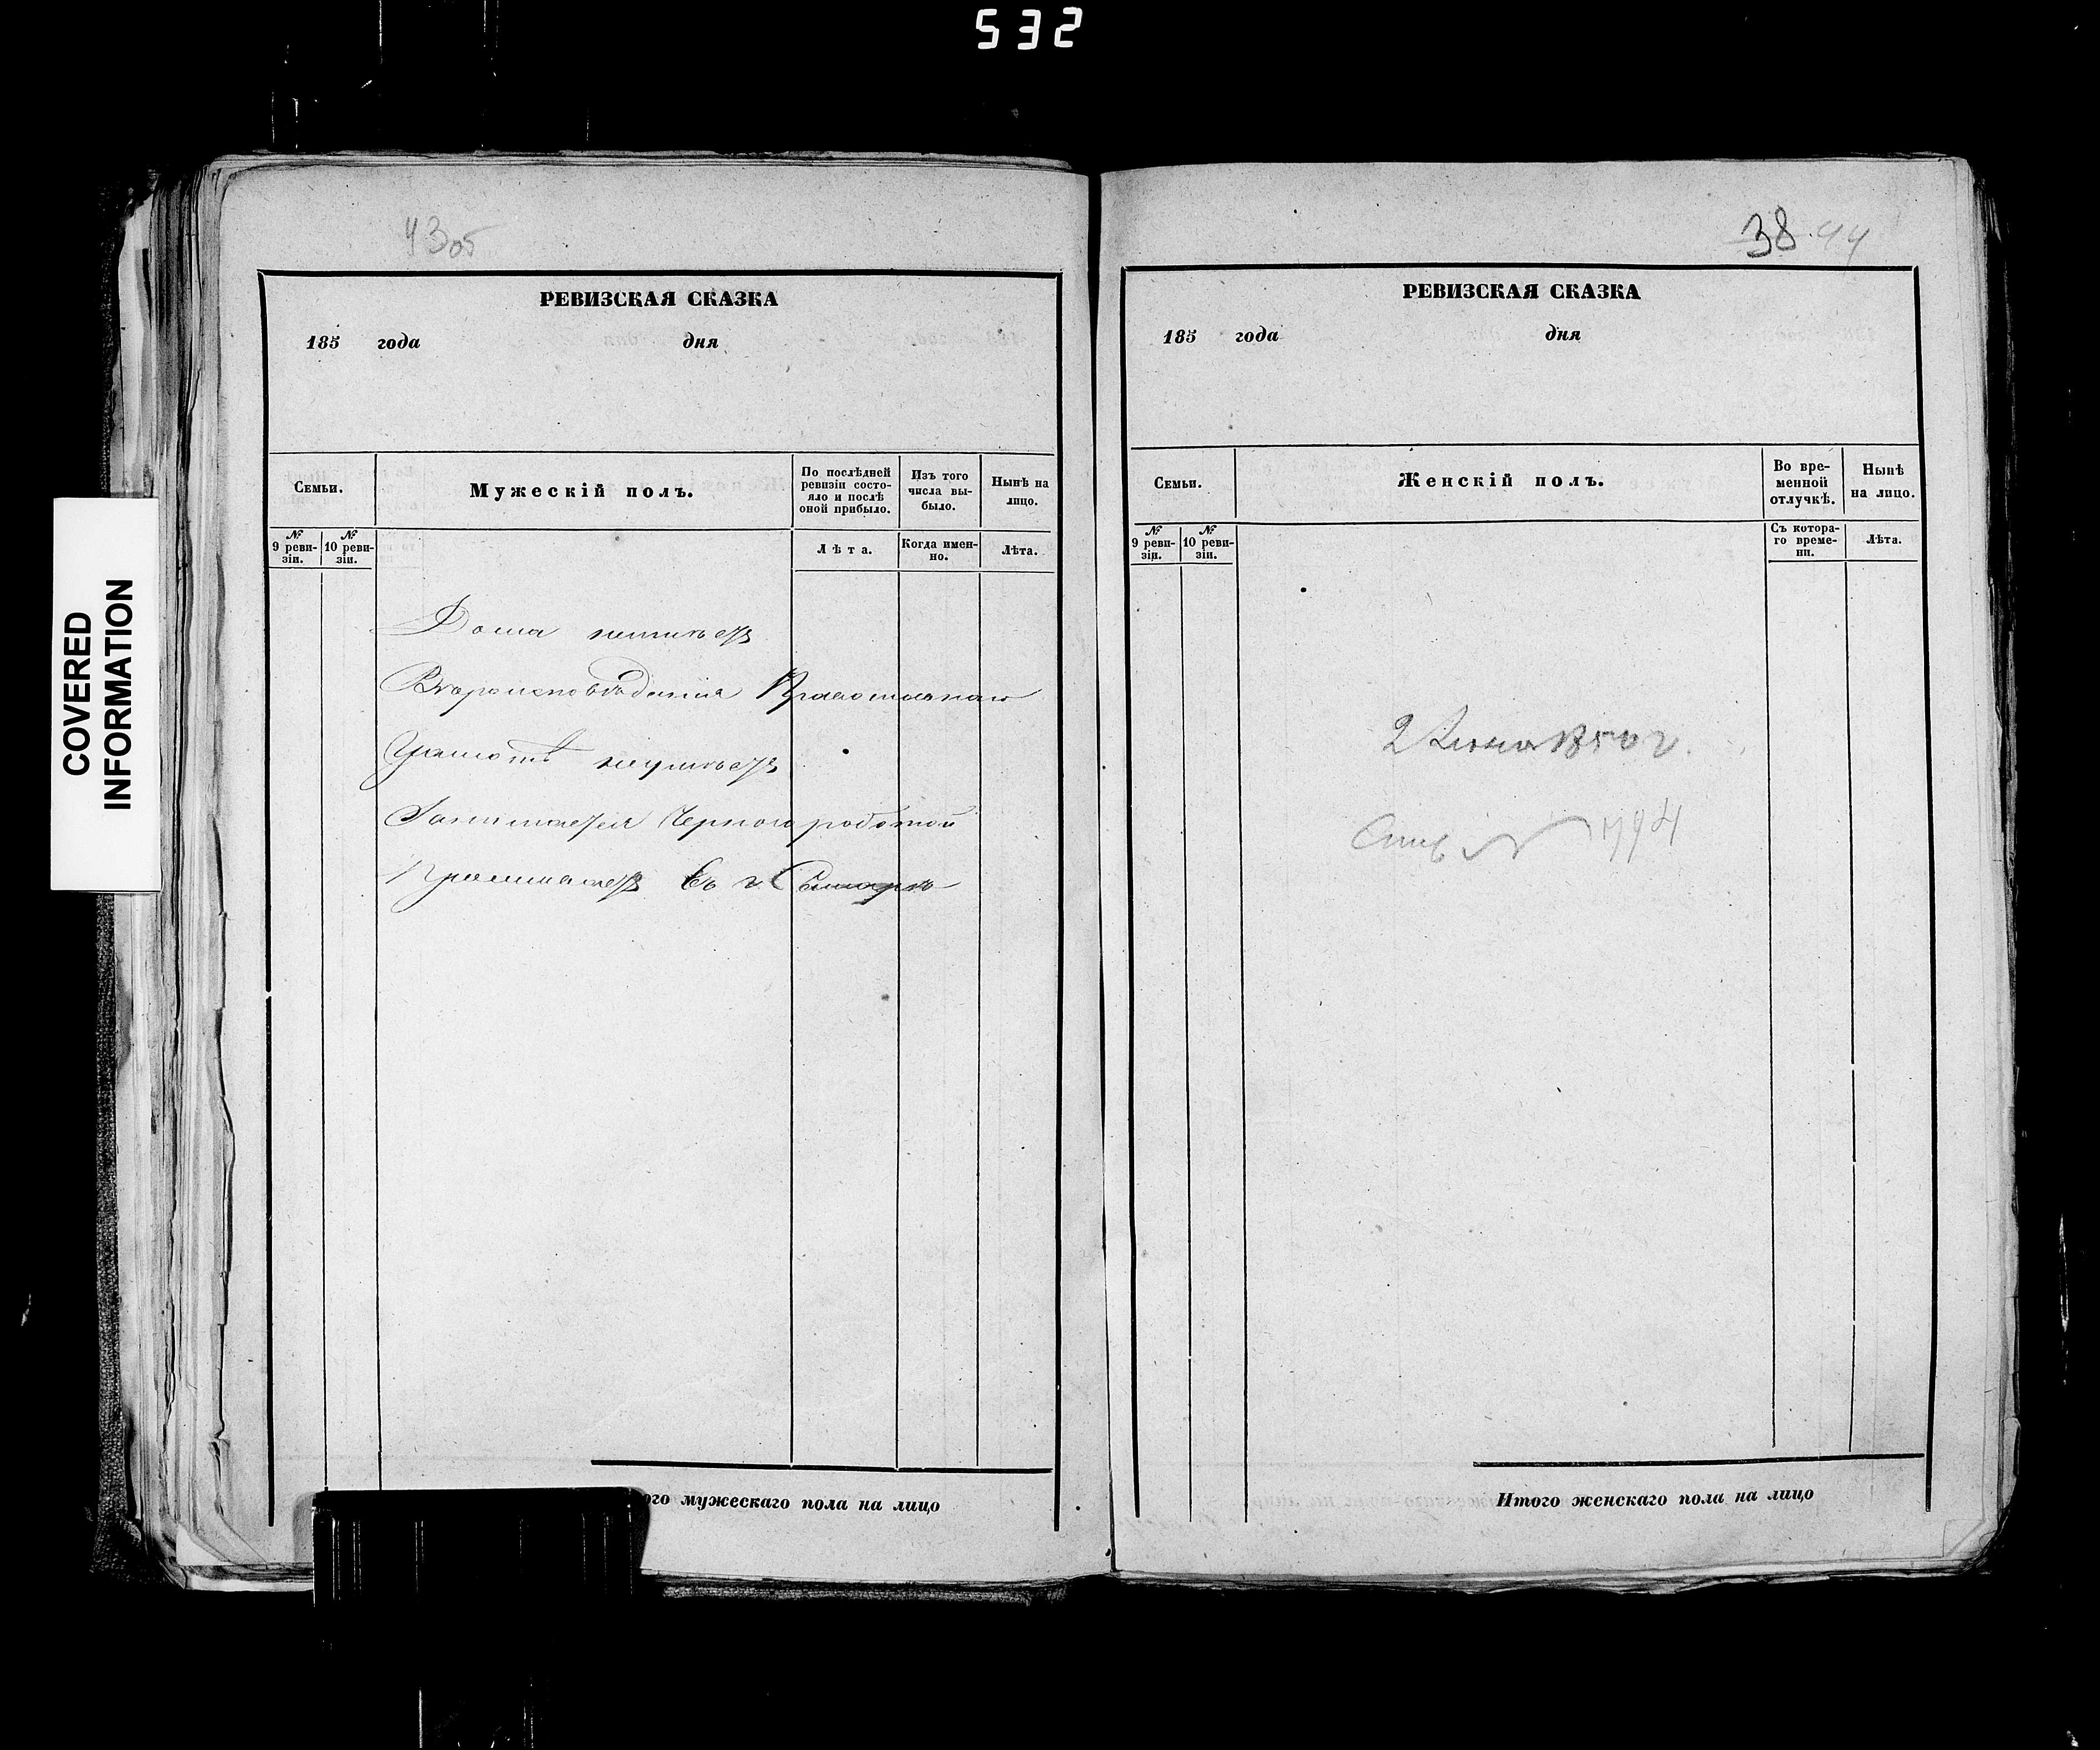 532
COVERED
INFORMATION
43об
РЕВИЗСКАЯ СКАЗКА
185 года дня
Семьи.
Мужескій полъ.
По послѣдней ревизіи состояло и послѣ оной прибыло.
Изъ того числа выбыло.
Нынѣ на лицо.
№ 9 ревизіи.
№ 10 ревизіи.
Лѣта.
Когда именно.
Лѣта.
Дома неимѣетъ
Вѣроисповѣданія Православнаго
Грамотѣ неумѣетъ
Занимается Черного роботой
Проживаетъ Въ г. Самарѣ
ого мужескаго пола на лицо
38 44
РЕВИЗСКАЯ СКАЗКА
185 года дня
Семьи.
Женскій полъ.
Во временной отлучкѣ.
Нынѣ на лицо.
№ 9 ревизіи.
№ 10 ревизіи.
Съ котораго времени.
Лѣта.
2 Июня 1850 г.
№ 1794
Итого женскаго пола на лицо